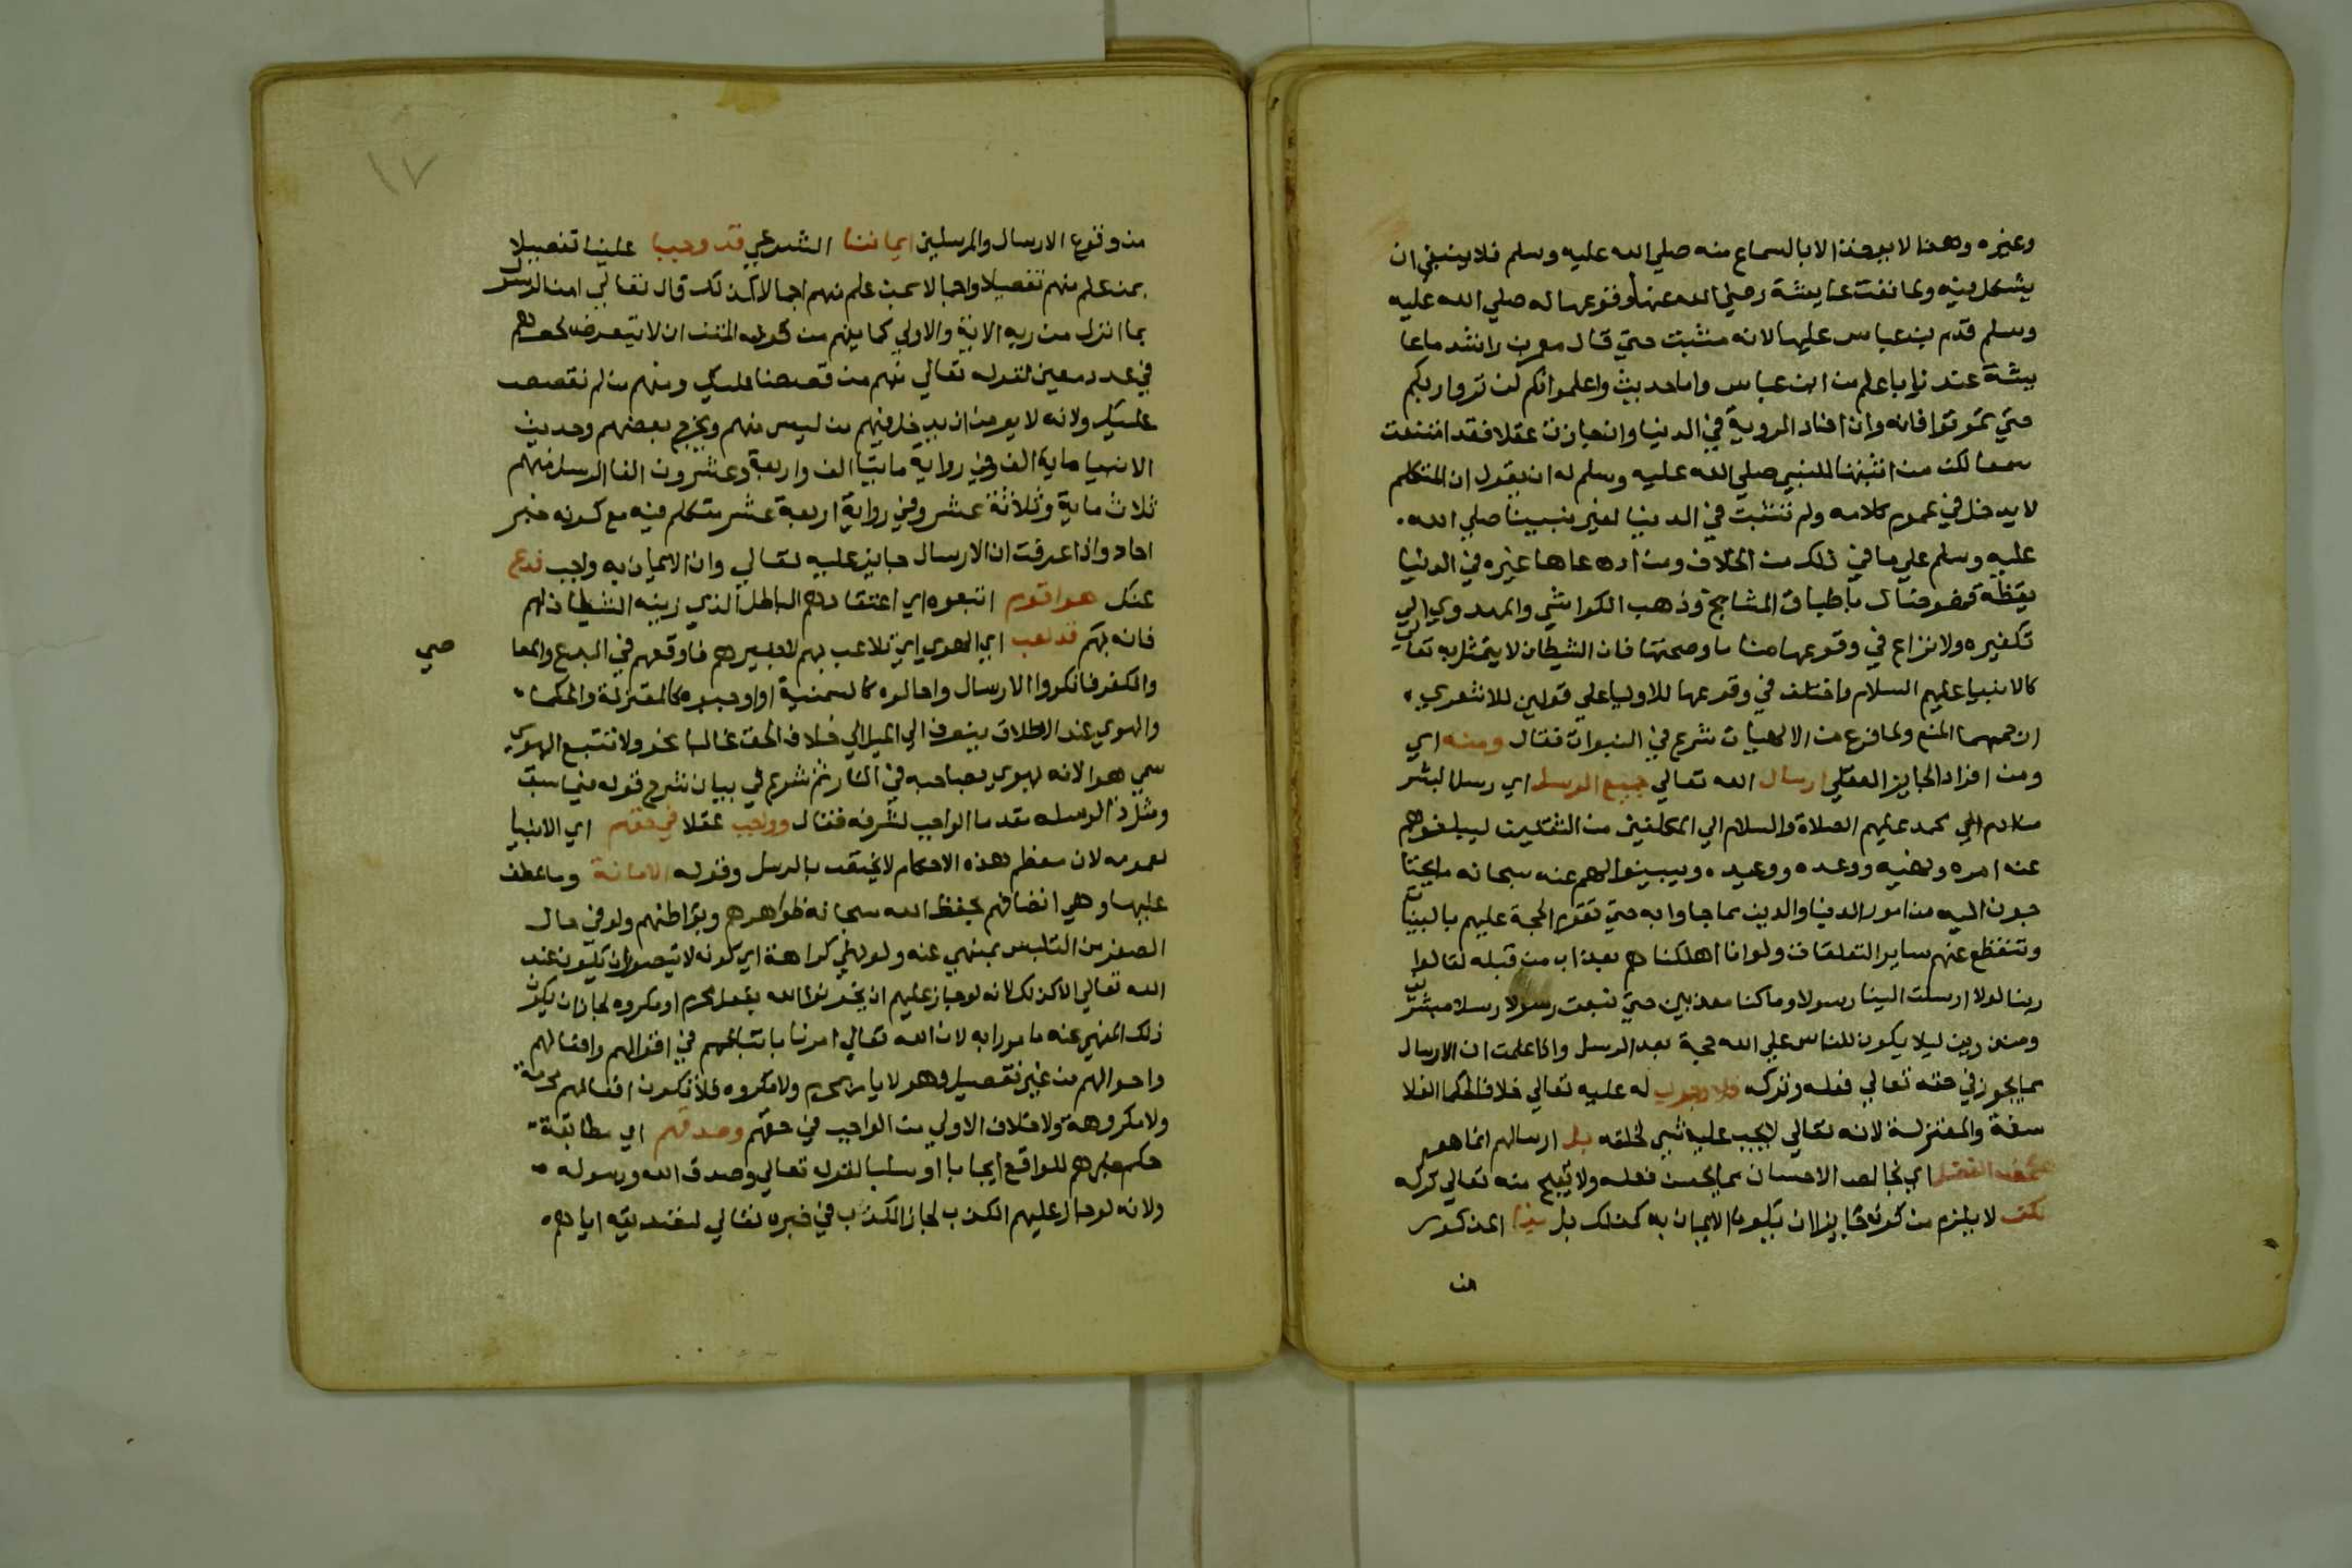 وغيره وهذا لا يوخذ الا بالسماع منه صلي الله عليه وسلم فلا ينبغي ان
يشكل فيه ولما نفت عايشة رضي الله عنها وقوعها له صلي الله عليه
وسلم قدم بن عباس عليها لانه مثبت حتي قال معمر بن راشد ما عا
يشة عندنا باعلم من ابن عباس واما حديث واعلموا انكم لن تروا ربكم
حتي تموتوا فانه وان افاد الروية في الدنيا وان جازت عقلا فقد امتنعت
سمعا لكن من اثبتها للنبي صلي الله عليه وسلم له ان يقول ان المتكلم
لا يدخل في عموم كلامه ولم تثبت في الدنيا لغير نبينا صلي الله
عليه وسلم علي ما في ذلك من الخلاف ومن ادعاها غيره في الدنيا
يقظة فهو ضال باطباق المشايخ وذهب الكواشي والمهدوي الي
تكفيره ولا نزاع في وقوعها مناما وصحتها فان الشيطان لا يتمثل به تعالي
كالانبيا عليهم السلام واختلف في وقوعها للاوليا علي قولين للاشعري
ارجحهما المنع ولما فرغ من الالهيات شرع في النبوات فقال ومنه اي
ومن افراد الجايز العقلي ارسال الله تعالي جميع الرسل اي رسل البشر
من ادم الي محمد عليهم الصلاة والسلام الي المكلفين من الثقلين ليبلغوهم
عنه امره ونهيه ووعده ووعيده ويبينوا لهم عنه سبحانه ما يحتا
جون اليه من امور الدنيا والدين مما جاوا به حتي تقوم الحجة عليهم بالبينات
وتنقطع عنهم ساير التعلقات ولو انا اهلكناهم بعذاب من قبله لقالوا
ربنا لولا ارسلت الينا رسولا وما كنا معذبين حتي نبعث رسولا رسلا مبشرين
ومنذرين ليلا يكون للناس علي الله حجة بعد الرسل واذا علمت ان الارسال
مما يجوز في حقه تعالي فعله وتركه فلا وجوب له عليه تعالي خلافا للحكما الفلا
سفة والمعتزلة لانه تعالي لا يجب عليه شي لخلقه بل ارسالهم انما هو
بمحض الفضل اي بخالص الاحسان مما يحسن فعله ولا يقبح منه تعالي تركه
لكن لا يلزم من كونه جايزا ان يكون الايمان به كذلك بل بذا المذكور
من
١٧
من وقوع الارسال والمرسلين ايماننا الشرعي قد وجبا علينا تفصيلا
بمن علم منهم تفصيلا واجمالا بمن علم منهم اجمالا كذلك قال تعالي امن الرسول
بما انزل من ربه الاية والاولي كما يفهم من قوله المتن ان لا يتعرض لحصرهم
في عدد معين لقوله تعالي منهم من قصصنا عليك ومنهم من لم نقصص
عليك ولانه لا يومن ان يدخل فيهم من ليس منهم ويخرج بعضهم وحديث
الانبيا ماية الف وفي رواية مايتا الف واربعة وعشرون الفا الرسل منهم
ثلاث ماية وثلاثة عشر وفي رواية اربعة عشر متكلم فيه مع كونه خبر
احاد واذا عرفت ان الارسال جايز عليه تعالي وان الايمان به واجب فدع
عنك هوا قوم اتبعوه اي اعتقادهم الباطل الذي زينه الشيطان لهم
فانه بهم قد لعب اي الهوي اي تلاعب بهم لا بغيرهم فاوقعهم في البدع والمعا
صي
والكفر فانكروا الارسال واحالوه كالسمنية او اوجبوه كالمعتزلة والحكما
والهوي عند الاطلاق ينصرف الي الميل الي خلاف الحق غالبا نحو ولا تتبع الهوي
سمي هوا لانه يهوي بصاحبه في النار ثم شرع في بيان شرح قوله فيما سبق
ومثل ذا لرسله مقدما الواجب لشرفه فقال وواجب عقلا في حقهم اي الانبيا
لعمومه لان معظم هذه الاحكام لا يختص بالرسل وقوله الامانة وما عطف
عليها وهي اتصافهم بحفظ الله سبحانه ظواهرهم وبواطنهم ولو في حال
الصغر من التلبس بمنهي عنه ولو نهي كراهة اي كونه لا يتصور ان يكون عند
الله تعالي الا كذلك لانه لو جاز عليهم ان يخونوا الله بفعل محرم او مكروه لجاز ان يكون
ذلك المنهي عنه مامورا به لان الله تعالي امرنا باتباعهم في اقوالهم وافعالهم
واحوالهم من غير تفصيل وهو لا يامر بمحرم ولا مكروه فلا تكون افعالهم محرمة
ولا مكروهة ولا خلاف الاولي من الواجب في حقهم وصدقهم اي مطابقة
حكم خبرهم للواقع ايجابا او سلبا لقوله تعالي وصدق الله ورسوله
ولانه لو جاز عليهم الكذب لجاز الكذب في خبره تعالي لتصديقه اياهم